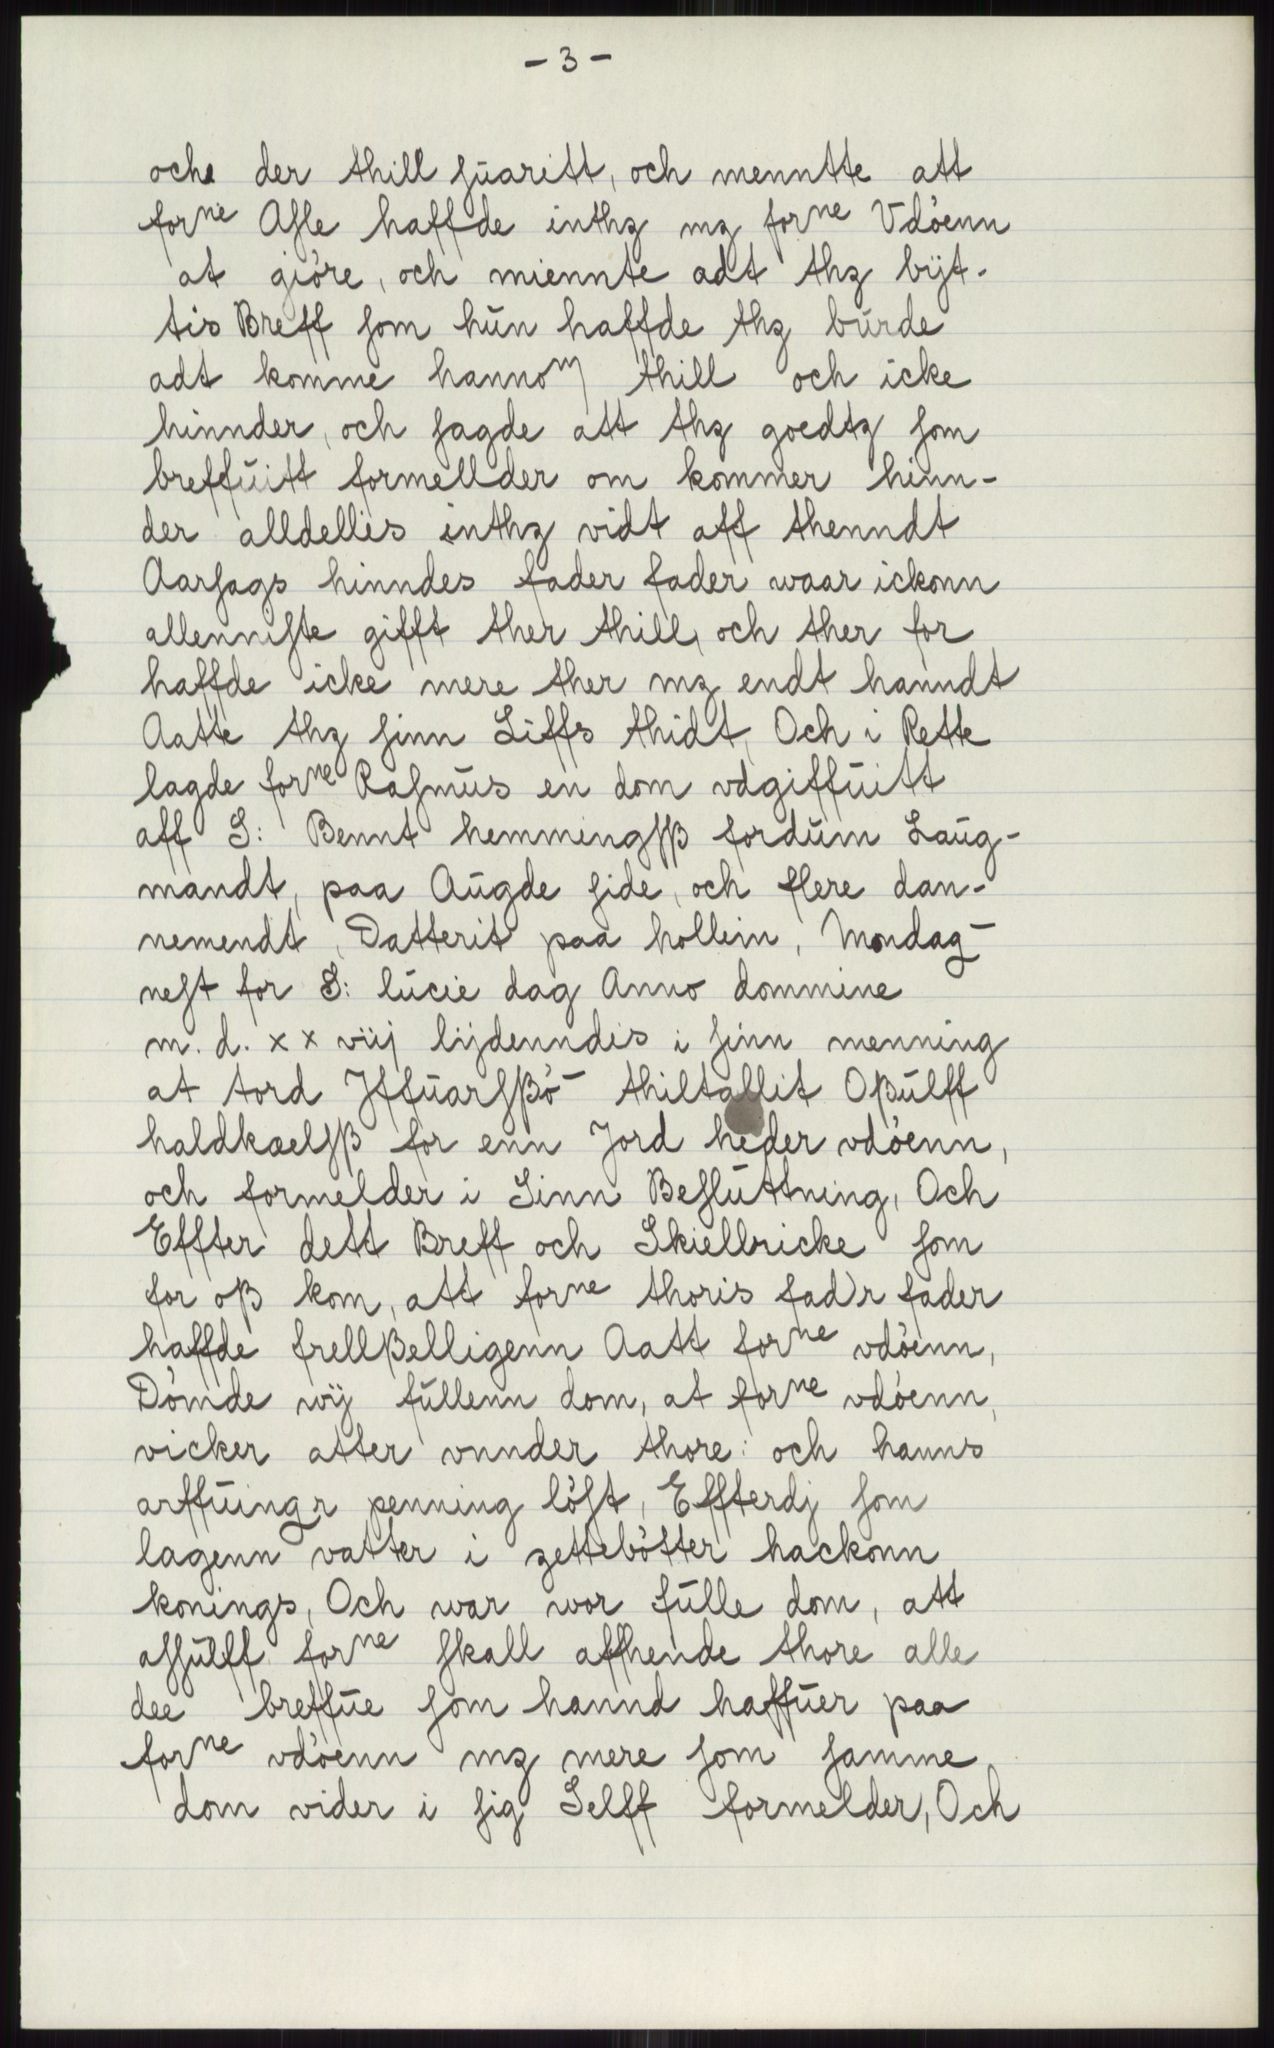 - 3 -
oche der thill suaritt, och menntte att
forne Asle haffde inthz mz forne Vdöenn
at giöre, och miennte adt thz bÿt-
tis Breff som hun haffde thz burde
adt komme hannom thill och icke
hinnder, och sagde att thz goedtz som
breffuitt formellder om kommer hinn-
der alldellis inthz vidt aff thenndt
Aarsags hinndes fader fader waar ickonn
allenniste gifft ther thill, och ther for
haffde icke mere ther mz endt hanndt
Aatte thz sinn Liffs thidt, Och i Rette
lagde forne Rasmus en dom vdgiffuitt
aff S: Bennt hemmingsß fordum Laug-
mandt, paa Augde side, och flere dan-
nemendt, Datterit paa hollem, Mondag
nest for S: lucie dag Anno dommine
m. d. xx viij lijdenndis i sinn menning
at tord Jffuarsßö thiltallit Oßulff
haldkaelsß for enn Jord heder vdöenn,
och formelder i Sinn Besluttning, Och
Effter dett Breff och Skiellricke som
for oß kom, att forne thoris fad'r fader
haffde frellßelligenn Aatt forne vdöenn,
Dömde wÿ fullenn dom, at forne vdöenn,
vicker atter vnnder thore: och hanns
arffuingr penning löst, Effterdj som
lagenn vatter i zettebötter hackonn
konings, Och war wor fulle dom, att
assulff forne skall affhende thore alle
dee breffue som hannd haffuer paa
forne vdöenn mz mere som samme
dom vider i sig Selff formelder, Och